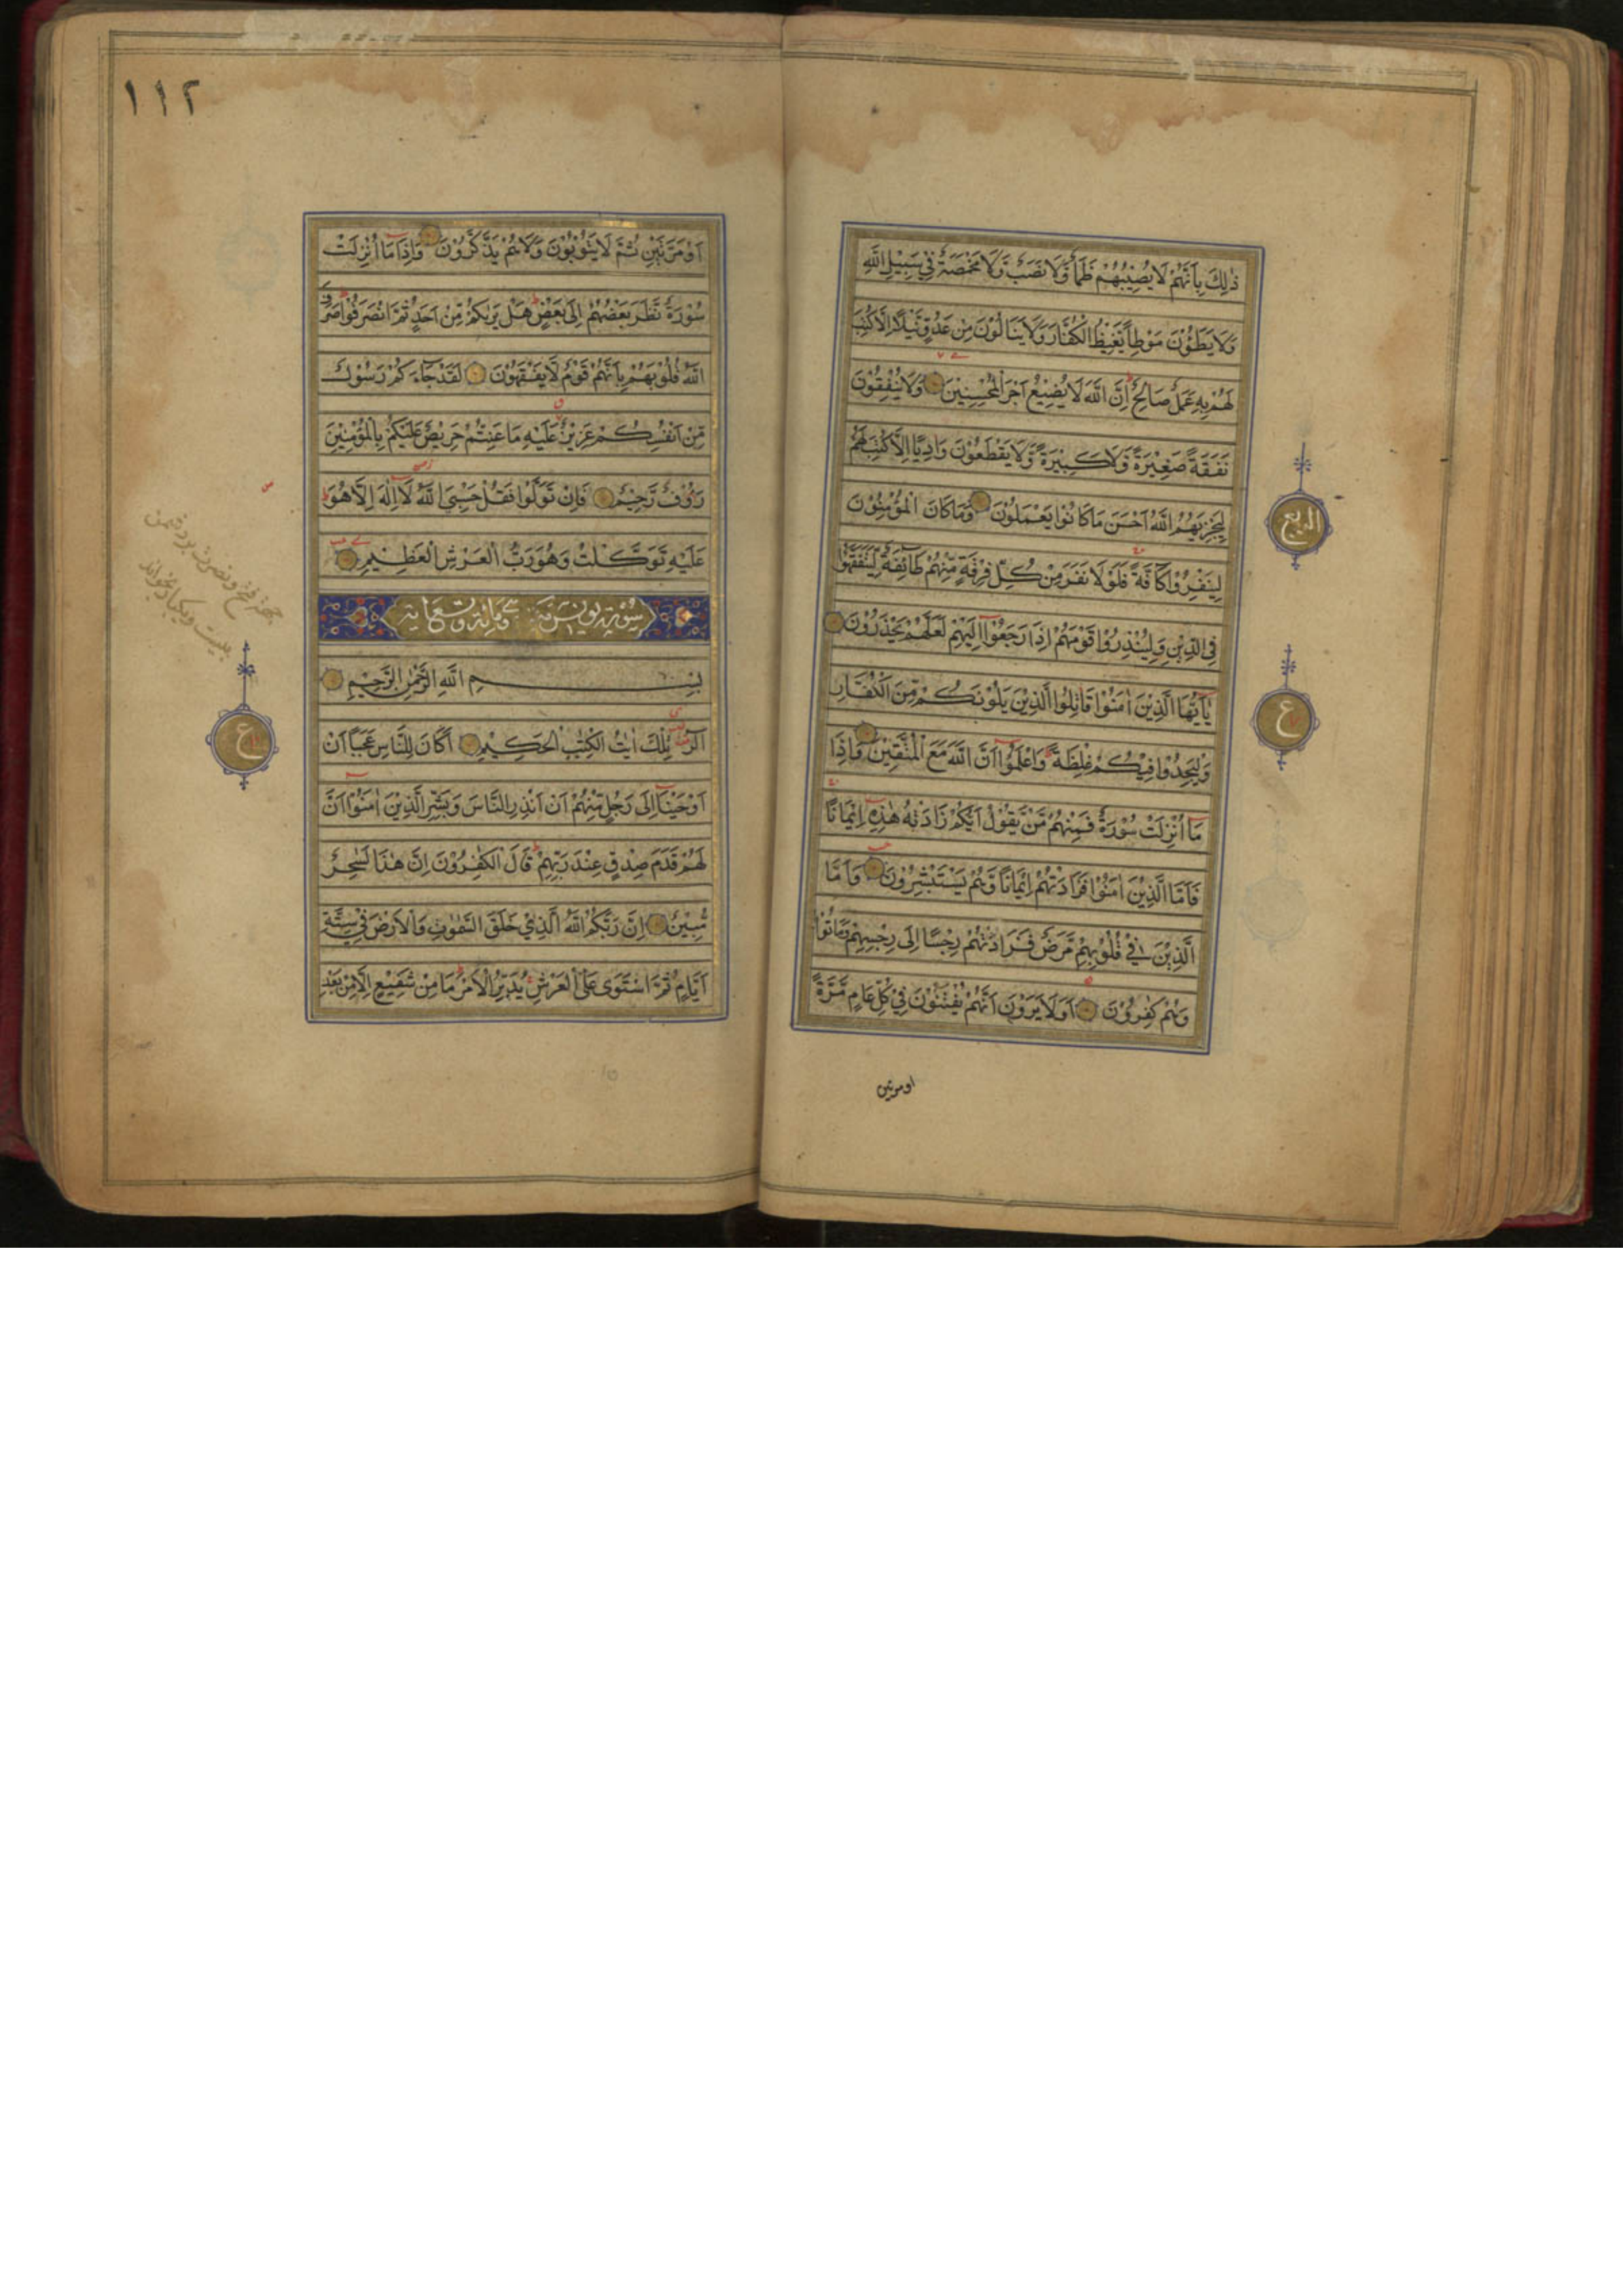 ذٰلِكَ بِاَنَّهُمْ لَا يُصِيْبُهُمْ ظَمَأٌ وَّلَا نَصَبٌ وَّلَا مَخْمَصَةٌ فِيْ سَبِيْلِ اللّٰهِ
وَلَا يَطَؤُنَ مَوْطِأً يَّغِيْظُ الْكُفَّارَ وَلَا يَنَالُوْنَ مِنْ عَدُوٍّ نَّيْلًا اِلَّا كُتِبَ
لَهُمْ بِهٖ عَمَلٌ صَالِحٌ ط اِنَّ اللّٰهَ لَا يُضِيْعُ اَجْرَ الْمُحْسِنِيْنَ وَلَا يُنْفِقُوْنَ
نَفَقَةً صَغِيْرَةً وَّلَا كَبِيْرَةً وَّلَا يَقْطَعُوْنَ وَادِيًا اِلَّا كُتِبَ لَهُمْ
لِيَجْزِيَهُمُ اللّٰهُ اَحْسَنَ مَا كَانُوْا يَعْمَلُوْنَ وَمَا كَانَ الْمُؤْمِنُوْنَ
الربع
لِيَنْفِرُوْا كَآفَّةً فَلَوْلَا نَفَرَ مِنْ كُلِّ فِرْقَةٍ مِّنْهُمْ طَآئِفَةٌ لِّيَتَفَقَّهُوْا
فِي الدِّيْنِ وَلِيُنْذِرُوْا قَوْمَهُمْ اِذَا رَجَعُوْٓا اِلَيْهِمْ لَعَلَّهُمْ يَحْذَرُوْنَ
يٰٓاَيُّهَا الَّذِيْنَ اٰمَنُوْا قَاتِلُوا الَّذِيْنَ يَلُوْنَكُمْ مِّنَ الْكُفَّارِ
ع
وَلْيَجِدُوْا فِيْكُمْ غِلْظَةً وَاعْلَمُوْٓا اَنَّ اللّٰهَ مَعَ الْمُتَّقِيْنَ وَاِذَا
مَآ اُنْزِلَتْ سُوْرَةٌ فَمِنْهُمْ مَّنْ يَّقُوْلُ اَيُّكُمْ زَادَتْهُ هٰذِهٖٓ اِيْمَانًا
فَاَمَّا الَّذِيْنَ اٰمَنُوْا فَزَادَتْهُمْ اِيْمَانًا وَّهُمْ يَسْتَبْشِرُوْنَ وَاَمَّا
الَّذِيْنَ فِيْ قُلُوْبِهِمْ مَّرَضٌ فَزَادَتْهُمْ رِجْسًا اِلٰى رِجْسِهِمْ وَمَاتُوْا
وَهُمْ كٰفِرُوْنَ اَوَلَا يَرَوْنَ اَنَّهُمْ يُفْتَنُوْنَ فِيْ كُلِّ عَامٍ مَّرَّةً
او مرتين
١١٢
اَوْ مَرَّتَيْنِ ثُمَّ لَا يَتُوْبُوْنَ وَلَا هُمْ يَذَّكَّرُوْنَ وَاِذَا مَآ اُنْزِلَتْ
سُوْرَةٌ نَّظَرَ بَعْضُهُمْ اِلٰى بَعْضٍ ط هَلْ يَرٰىكُمْ مِّنْ اَحَدٍ ثُمَّ انْصَرَفُوْا ط صَرَفَ
اللّٰهُ قُلُوْبَهُمْ بِاَنَّهُمْ قَوْمٌ لَّا يَفْقَهُوْنَ لَقَدْ جَآءَكُمْ رَسُوْلٌ
مِّنْ اَنْفُسِكُمْ عَزِيْزٌ عَلَيْهِ مَا عَنِتُّمْ حَرِيْصٌ عَلَيْكُمْ بِالْمُؤْمِنِيْنَ
رَءُوْفٌ رَّحِيْمٌ فَاِنْ تَوَلَّوْا فَقُلْ حَسْبِيَ اللّٰهُ لَآ اِلٰهَ اِلَّا هُوَ ط
عَلَيْهِ تَوَكَّلْتُ وَهُوَ رَبُّ الْعَرْشِ الْعَظِيْمِ
سورة يونس مكية وهي مائة وتسع آية
بِسْمِ اللّٰهِ الرَّحْمٰنِ الرَّحِيْمِ
ع
الٓرٰ تِلْكَ اٰيٰتُ الْكِتٰبِ الْحَكِيْمِ اَكَانَ لِلنَّاسِ عَجَبًا اَنْ
اَوْحَيْنَآ اِلٰى رَجُلٍ مِّنْهُمْ اَنْ اَنْذِرِ النَّاسَ وَبَشِّرِ الَّذِيْنَ اٰمَنُوْٓا اَنَّ
لَهُمْ قَدَمَ صِدْقٍ عِنْدَ رَبِّهِمْ ط قَالَ الْكٰفِرُوْنَ اِنَّ هٰذَا لَسٰحِرٌ
مُّبِيْنٌ اِنَّ رَبَّكُمُ اللّٰهُ الَّذِيْ خَلَقَ السَّمٰوٰتِ وَالْاَرْضَ فِيْ سِتَّةِ
اَيَّامٍ ثُمَّ اسْتَوٰى عَلَى الْعَرْشِ يُدَبِّرُ الْاَمْرَ ط مَا مِنْ شَفِيْعٍ اِلَّا مِنْ بَعْدِ